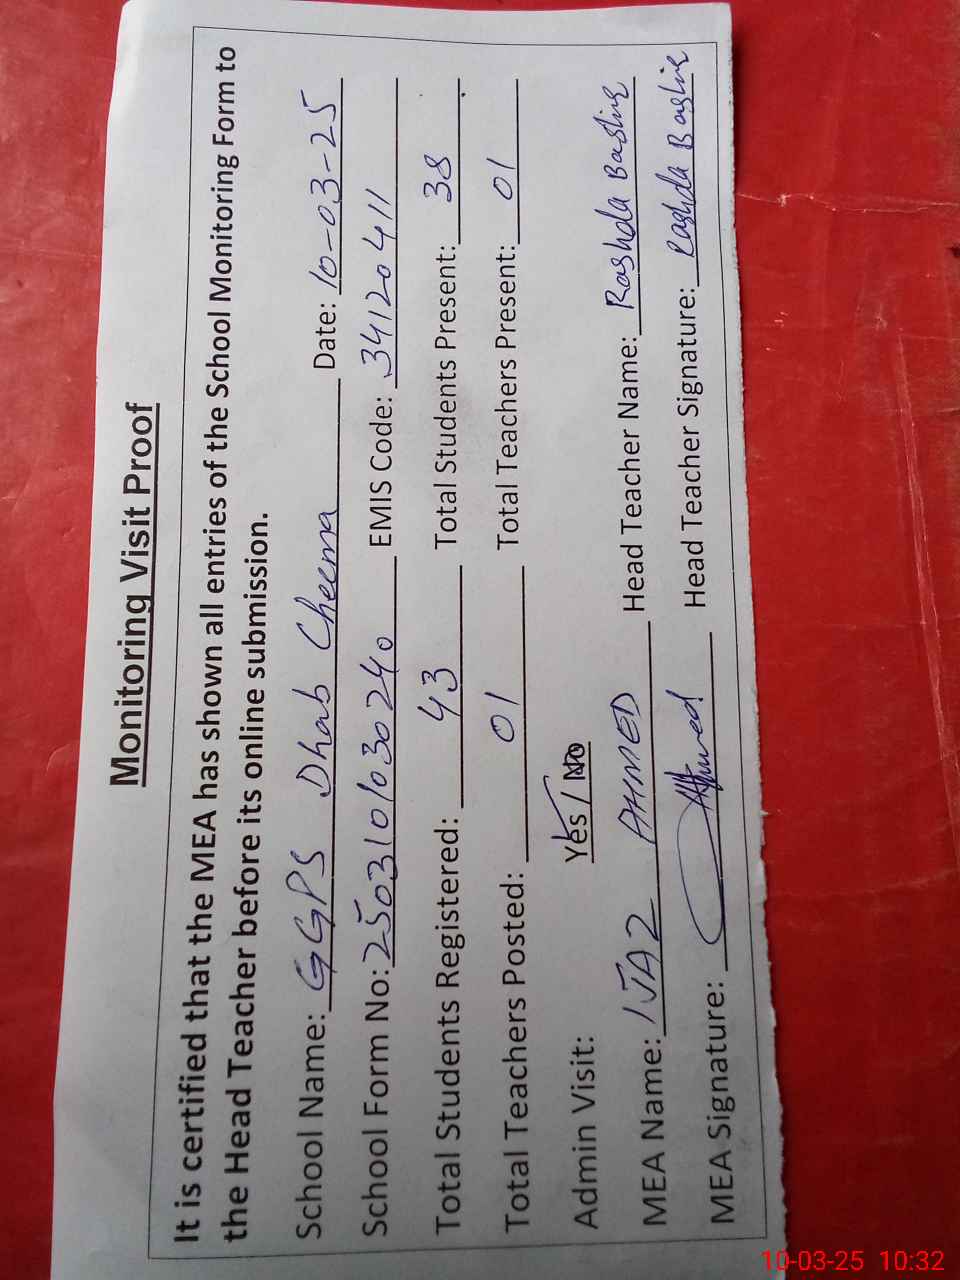 Monitoring Visit Proof
It is certified that the MEA has shown all entries of the School Monitoring Form to
the Head Teacher before its online submission.
School Name: GGPS Dhab Cheema Date: 10-03-25
School Form No: 250310103024o EMIS Code: 34120411
Total Students Registered: 43 Total Students Present: 38
Total Teachers Posted: 01 Total Teachers Present: 01
Admin Visit: Yes / No
MEA Name: IJAZ AHMED Head Teacher Name: Rashda Bashir
MEA Signature: Ahmed Head Teacher Signature: Rashda Bashir
10-03-25 10:32